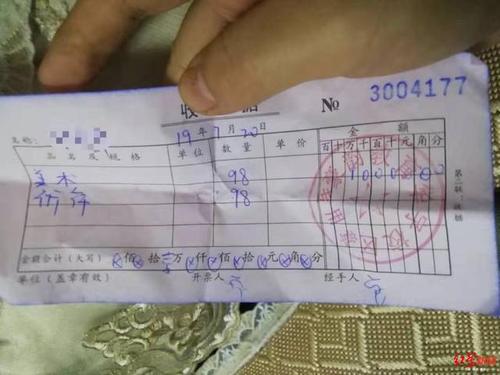 收 据 № 3004177
名称: 19 年 7 月 20 日
品 名 及 规 格 单 位 数 量 单 价 金 额
百 十 万 千 百 十 元 角 分
美术 98 1 0 0 0 0 0 0
98
金额合计(大写) ⊗佰 拾 万⊗仟⊗佰⊗拾⊗元⊗角⊗分
单位(盖章有效) 开票人 经手人
第二联:收据